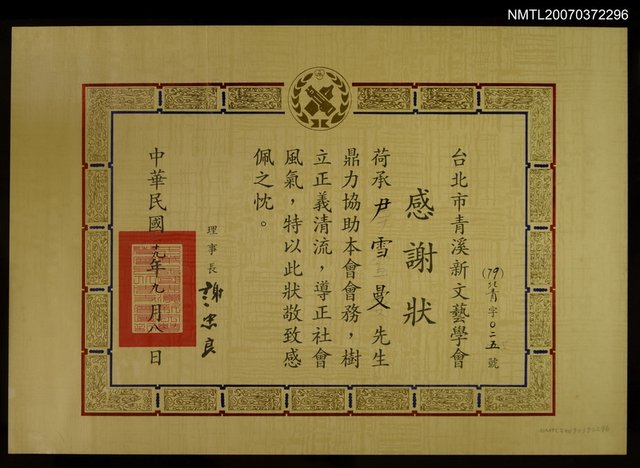 NMTL20070372296
台北市青溪新文藝學會
(79)北青字0二五號
感謝狀
荷承尹雪曼先生
鼎力協助本會會務，樹
立正義清流，導正社會
風氣，特以此狀敬致感
佩之忱。
理事長
謝忠良
中華民國七十九年九月八日